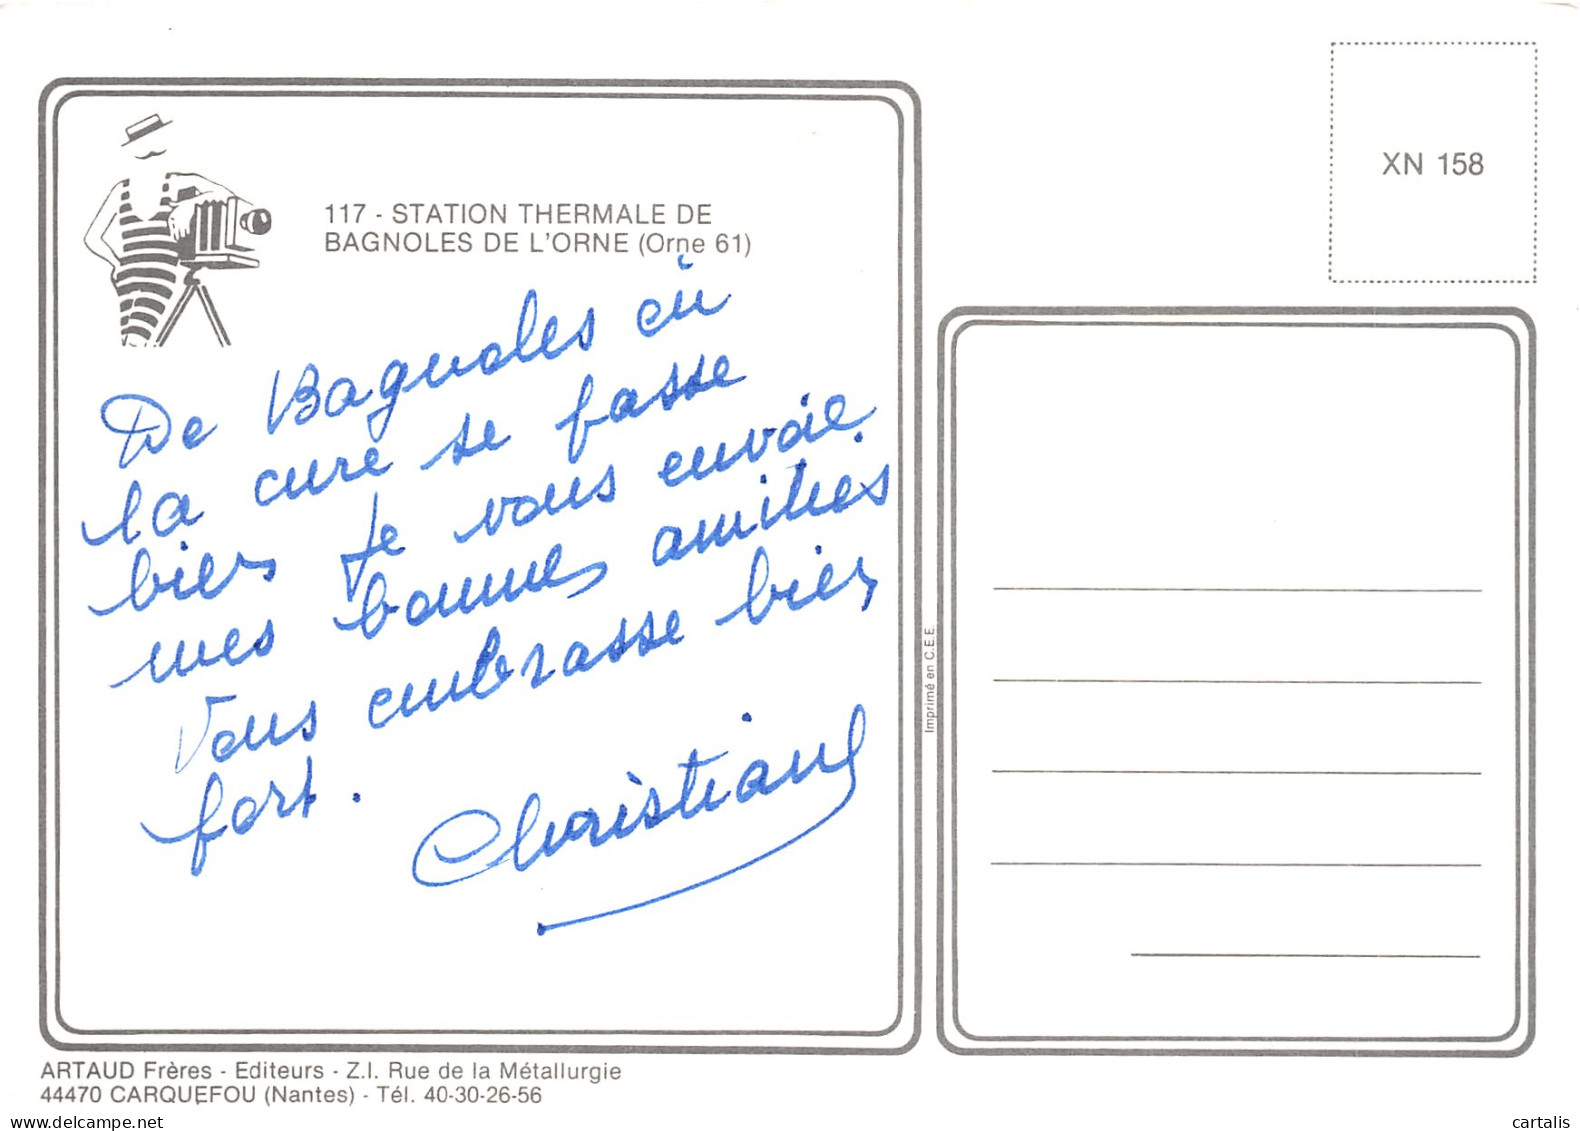 XN 158
117 - STATION THERMALE DE
BAGNOLES DE L'ORNE (Orne 61)
De Bagnoles où
la cure se passe
bien je vous envoie
mes bonnes amitiés
Vous embrasse bien
fort.
Christiane
Imprimé en C.E.E.
ARTAUD Frères - Editeurs - Z.I. Rue de la Métallurgie
44470 CARQUEFOU (Nantes) - Tél. 40-30-26-56
delcampe.net
cartalis